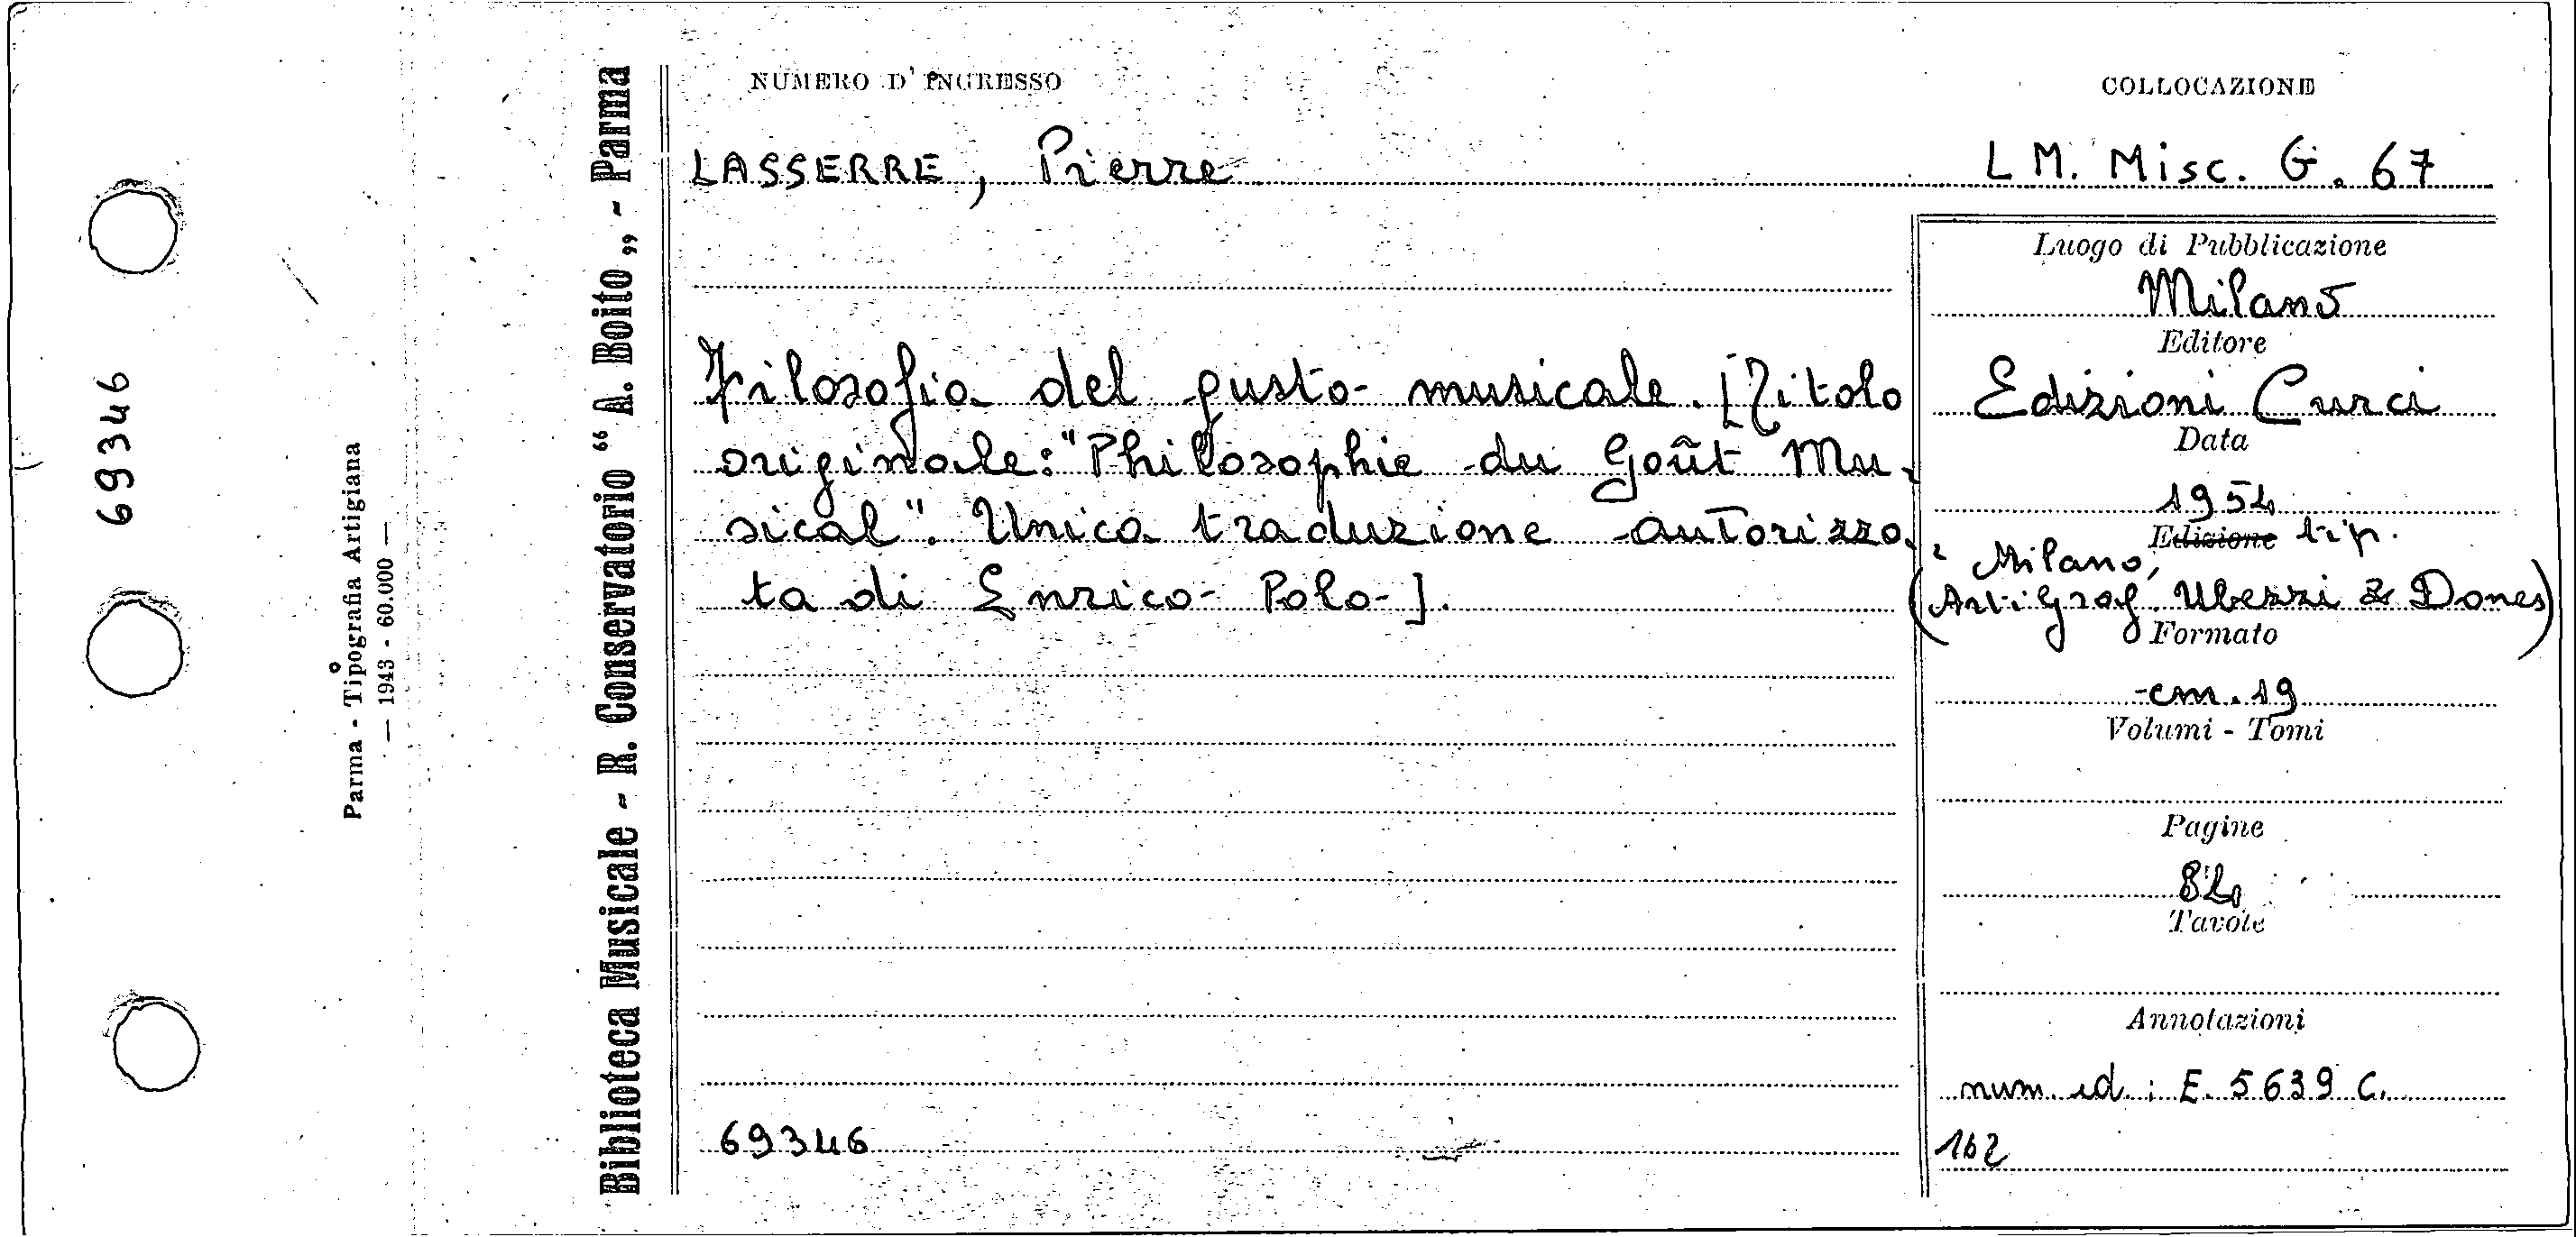 69346
Parma - Tipografia Artigiana
— 1943 - 60.000 —
Biblioteca Musicale - R. Conservatorio “ A. Boito „ - Parma
NUMERO D' INGRESSO
COLLOCAZIONE
LASSERRE, Pierre
L M. Misc. G. 67
Filosofia del gusto musicale. [Titolo
originale: "Philosophie du Goût Mu-
sical". Unica traduzione autorizza-
ta di Enrico Polo].
69346
Luogo di Pubblicazione
Milano
Editore
Edizioni Curci
Data
1954
Edizione tip.
Milano,
(Arti Graf. Ubezzi & Dones)
Formato
cm. 19
Volumi - Tomi
Pagine
84
Tavole
Annotazioni
num. ed.: E. 5639 C.
162